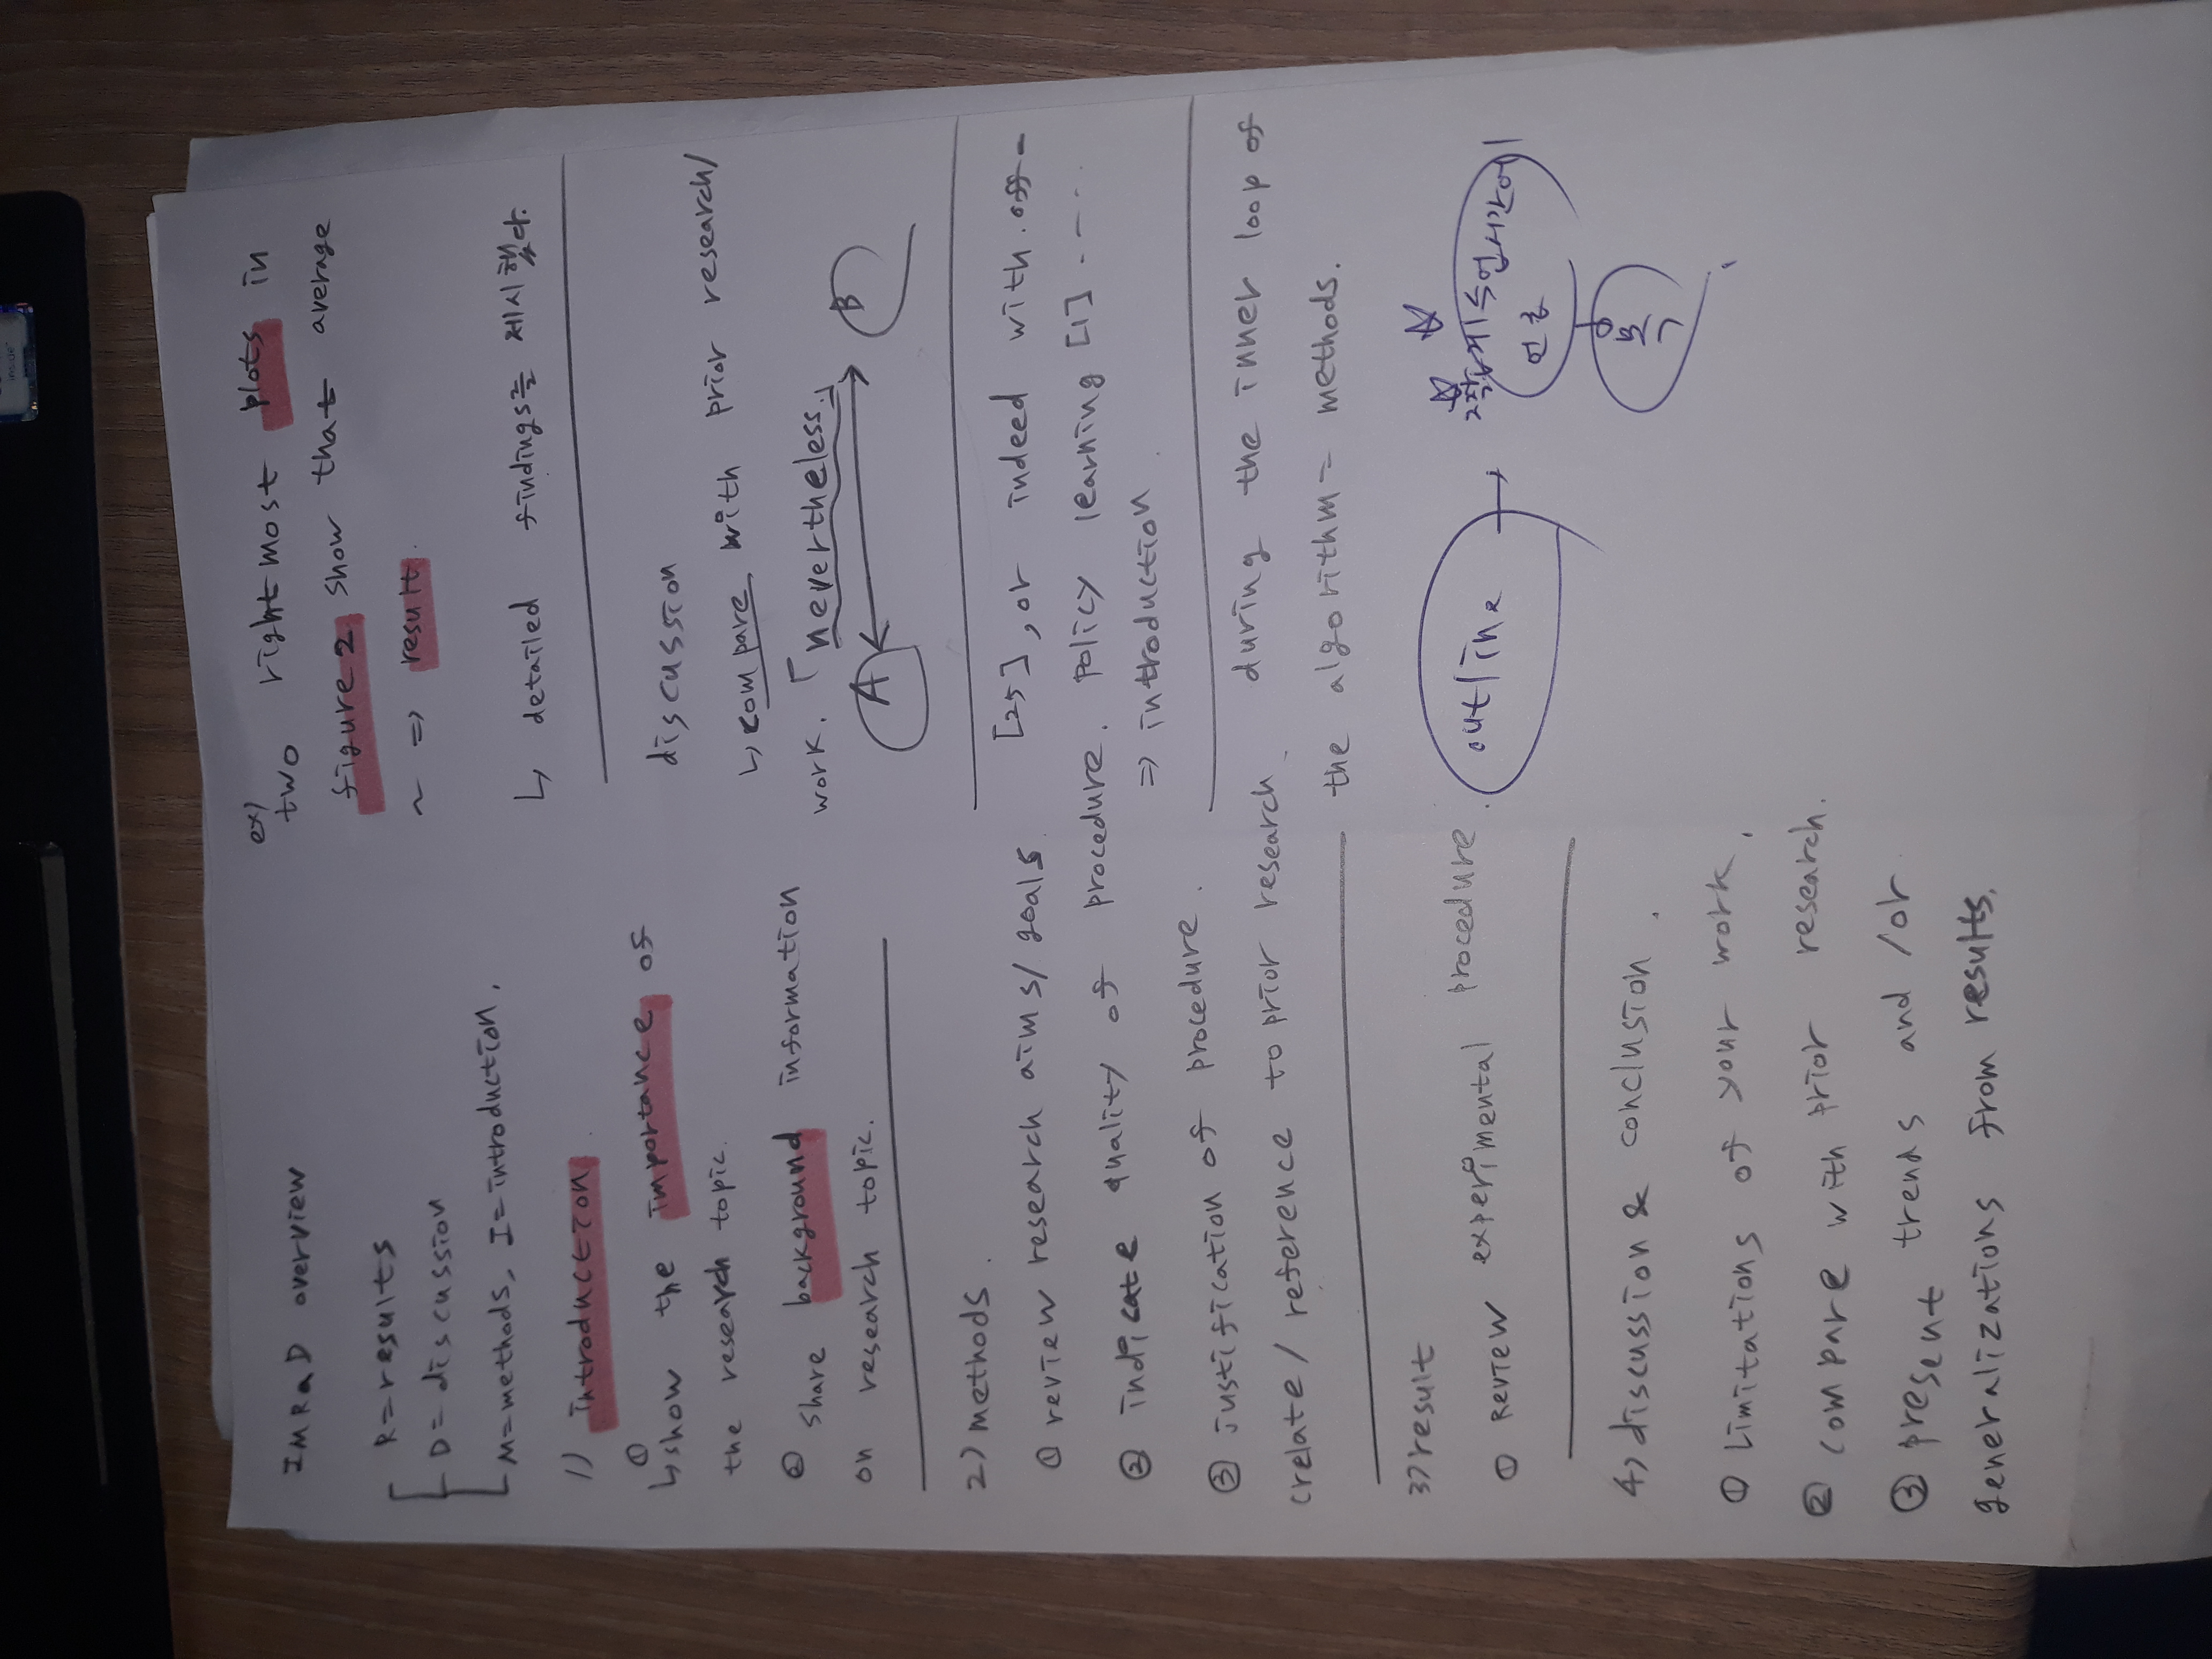 inside™
IMRaD overview
R=results
D=discussion
M=methods, I=introduction.
1) introduction.
①
↳show the importance of
the research topic.
② share background information
on research topic.
2) methods.
① review research aims/goals
② indicate quality of procedure.
③ justification of procedure.
(relate/reference to prior research
3) result
① Review experimental procedure.
4) discussion & conclusion.
① Limitations of your work.
② compare with prior research.
③ present trends and/or
generalizations from results.
ex)
two rightmost plots in
figure 2 show that average
~ ⇒ result.
↳ detailed findings를 제시했다.
discussion
↳ compare with prior research/
work. 「nevertheless.」
A ↔ B
[25], or indeed with off-
policy learning [1] ....
⇒ introduction.
during the inner loop of
the algorithm = methods.
outline →
수업시간에